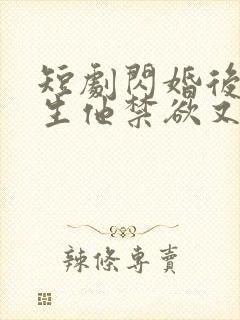 短劇閃婚後
生他禁欲又
辣條專賣